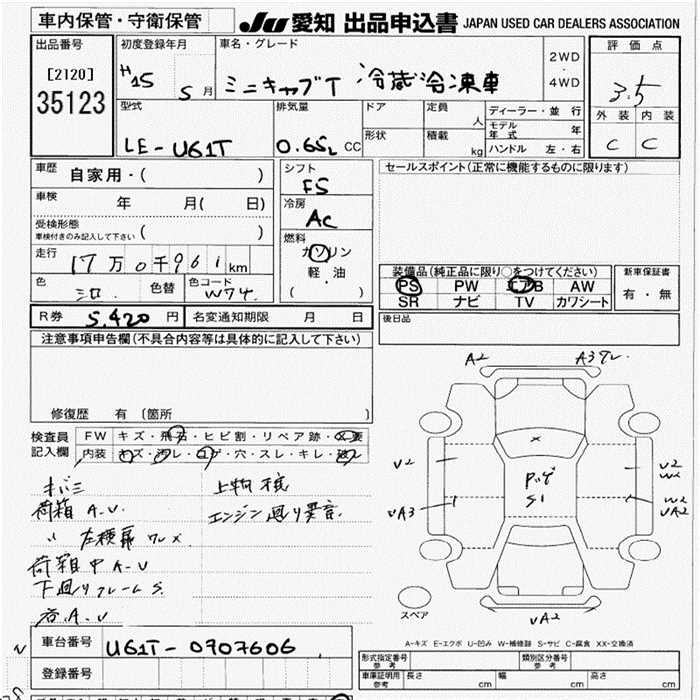 車内保管・守衛保管
JU 愛知 出品申込書 JAPAN USED CAR DEALERS ASSOCIATION
出品番号 初度登録年月 車名・グレード 2WD・4WD 評価点
[2120] H15 5月 ミニキャブT 冷蔵冷凍車 3.5
35123
型式 排気量 ドア 定員 人 ディーラー・並行 外装 内装
モデル年式 年
LE-U61T 0.65L CC 形状 積載 kg ハンドル 左・右 C C
車歴 自家用・( ) シフト F5 セールスポイント(正常に機能するものに限ります)
車検 年 月( 日) 冷房 AC
受検形態
車検付きのみ記入して下さい ( ) 燃料 ガソリン
走行 17万0千961km 軽・油
( )
装備品(純正品に限り○をつけてください) 新車保証書
色 シロ 色替 色コード W74 PS PW エアB AW 有・無
SR ナビ TV カワシート
R券 5,420円 名変通知期限 月 日 後日品
注意事項申告欄(不具合内容等は具体的に記入して下さい)
修復歴 有 (箇所 )
検査員記入欄 FW キズ・飛石・ヒビ割・リペア跡・×要
内装 キズ・汚レ・コゲ・穴・スレ・キレ・破レ
A2
V2
VA3
V2
VA2
S1
VA2
スペア
荷箱 A.U
エンジン廻り異音
荷箱中 A-U
下廻りフレームS.
A-キズ E-エクボ U-凹み W-補修跡 S-サビ C-腐食 XX-交換済
車台番号 U61T-0907606
登録番号
形式指定番号 参考 類別区分番号 参考
車庫証明用 参考 長さ cm 幅 cm 高さ cm